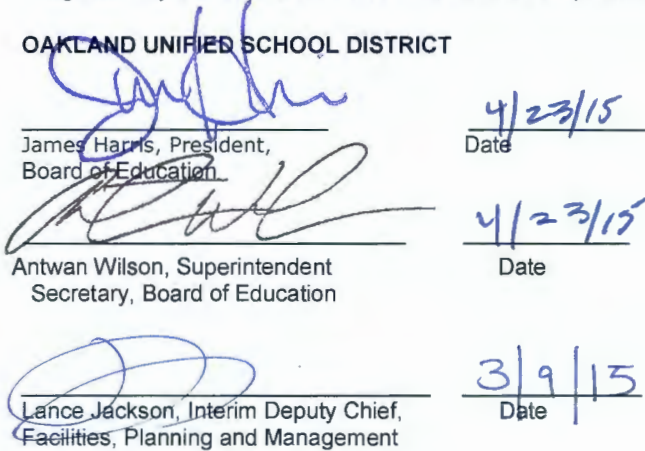 OAKLAND UNIFIED SCHOOL DISTRICT
4/23/15
James Harris, President,
Date
Board of Education
4/23/15
Antwan Wilson, Superintendent
Date
Secretary, Board of Education
3/9/15
Lance Jackson, Interim Deputy Chief,
Date
Facilities, Planning and Management